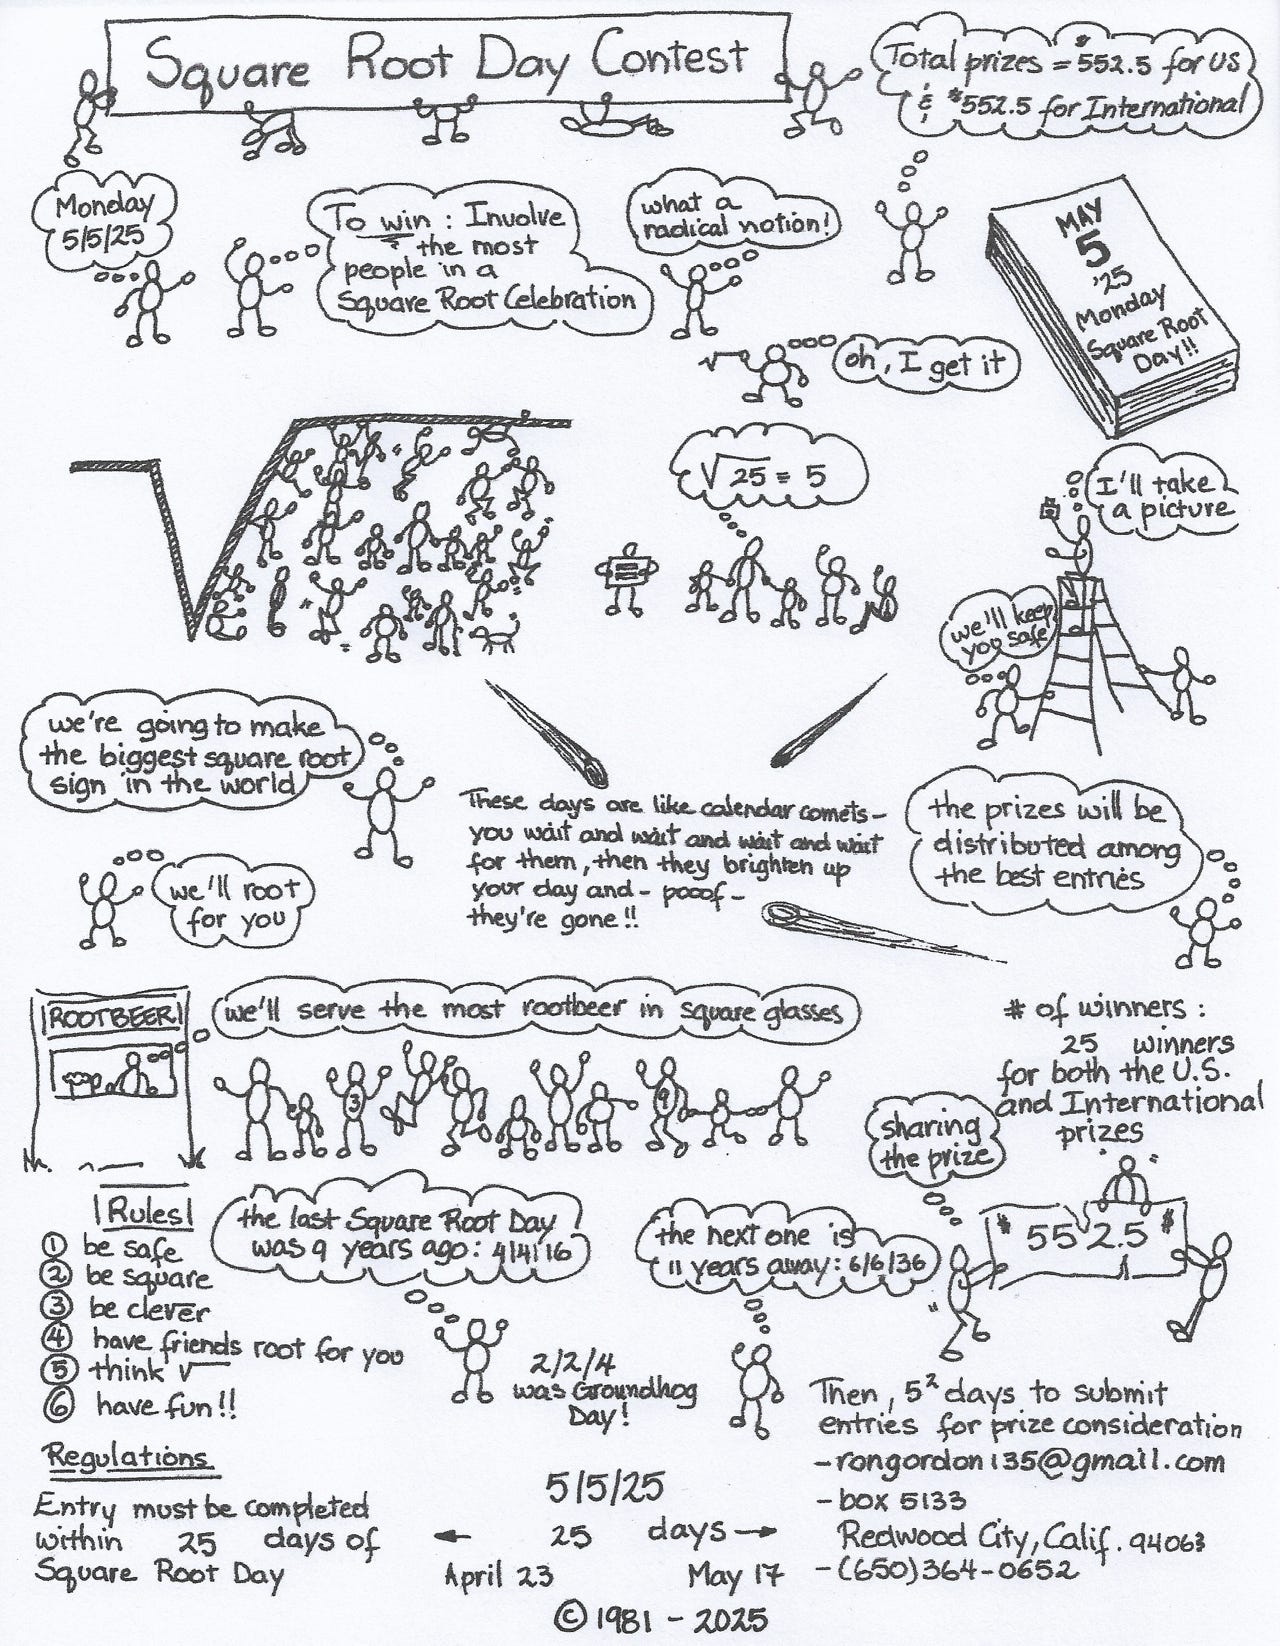 Square Root Day Contest
Total prizes = $552.5 for US
& $552.5 for International
Monday
5/5/25
To win : Involve
the most
people in a
Square Root Celebration
what a
radical notion!
MAY
5
'25
Monday
Square Root
Day!!
oh, I get it
√25 = 5
I'll take
a picture
we'll keep
you safe
we're going to make
the biggest square root
sign in the world
These days are like calendar comets-
you wait and wait and wait and wait
for them, then they brighten up
your day and - pooof -
they're gone!!
the prizes will be
distributed among
the best entries
we'll root
for you
ROOTBEER
we'll serve the most rootbeer in square glasses
3
9
# of winners :
25 winners
for both the U.S.
and International
prizes
sharing
the prize
$ 552.5 $
Rules
① be safe
② be square
③ be clever
④ have friends root for you
⑤ think √
⑥ have fun!!
the last Square Root Day
was 9 years ago: 4/4/16
the next one is
11 years away: 6/6/36
2/2/4
was Groundhog
Day!
Then, 5² days to submit
entries for prize consideration
-rongordon135@gmail.com
-box 5133
Redwood City, Calif. 94063
-(650)364-0652
Regulations
Entry must be completed
within 25 days of
Square Root Day
5/5/25
← 25 days →
April 23 May 17
© 1981 - 2025